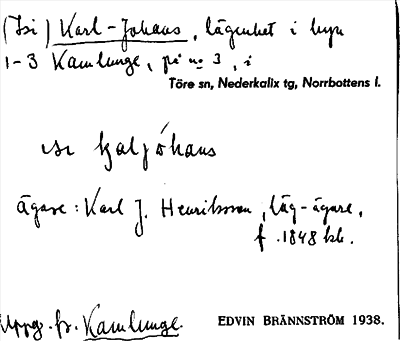 (Isi) Karl-Johans, lägenhet i byn
1-3 Kamlunge, på no 3, i
Töre sn, Nederkalix tg, Norrbottens l.
ägare: Karl J. Henriksson, läg-ägare,
f. 1848 kb.
Uppg. fr. Kamlunge.
EDVIN BRÄNNSTRÖM 1938.